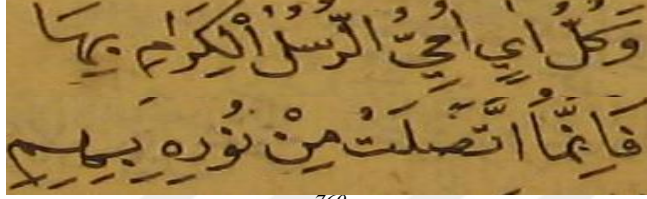 وَكُلُّ اٰيٍ اُجِيُّ الرُّسُلُ الْكِرَامِ بِهَا
فَاِنَّمَا اتَّصَلَتْ مِنْ نُورِهِ بِهِمِ